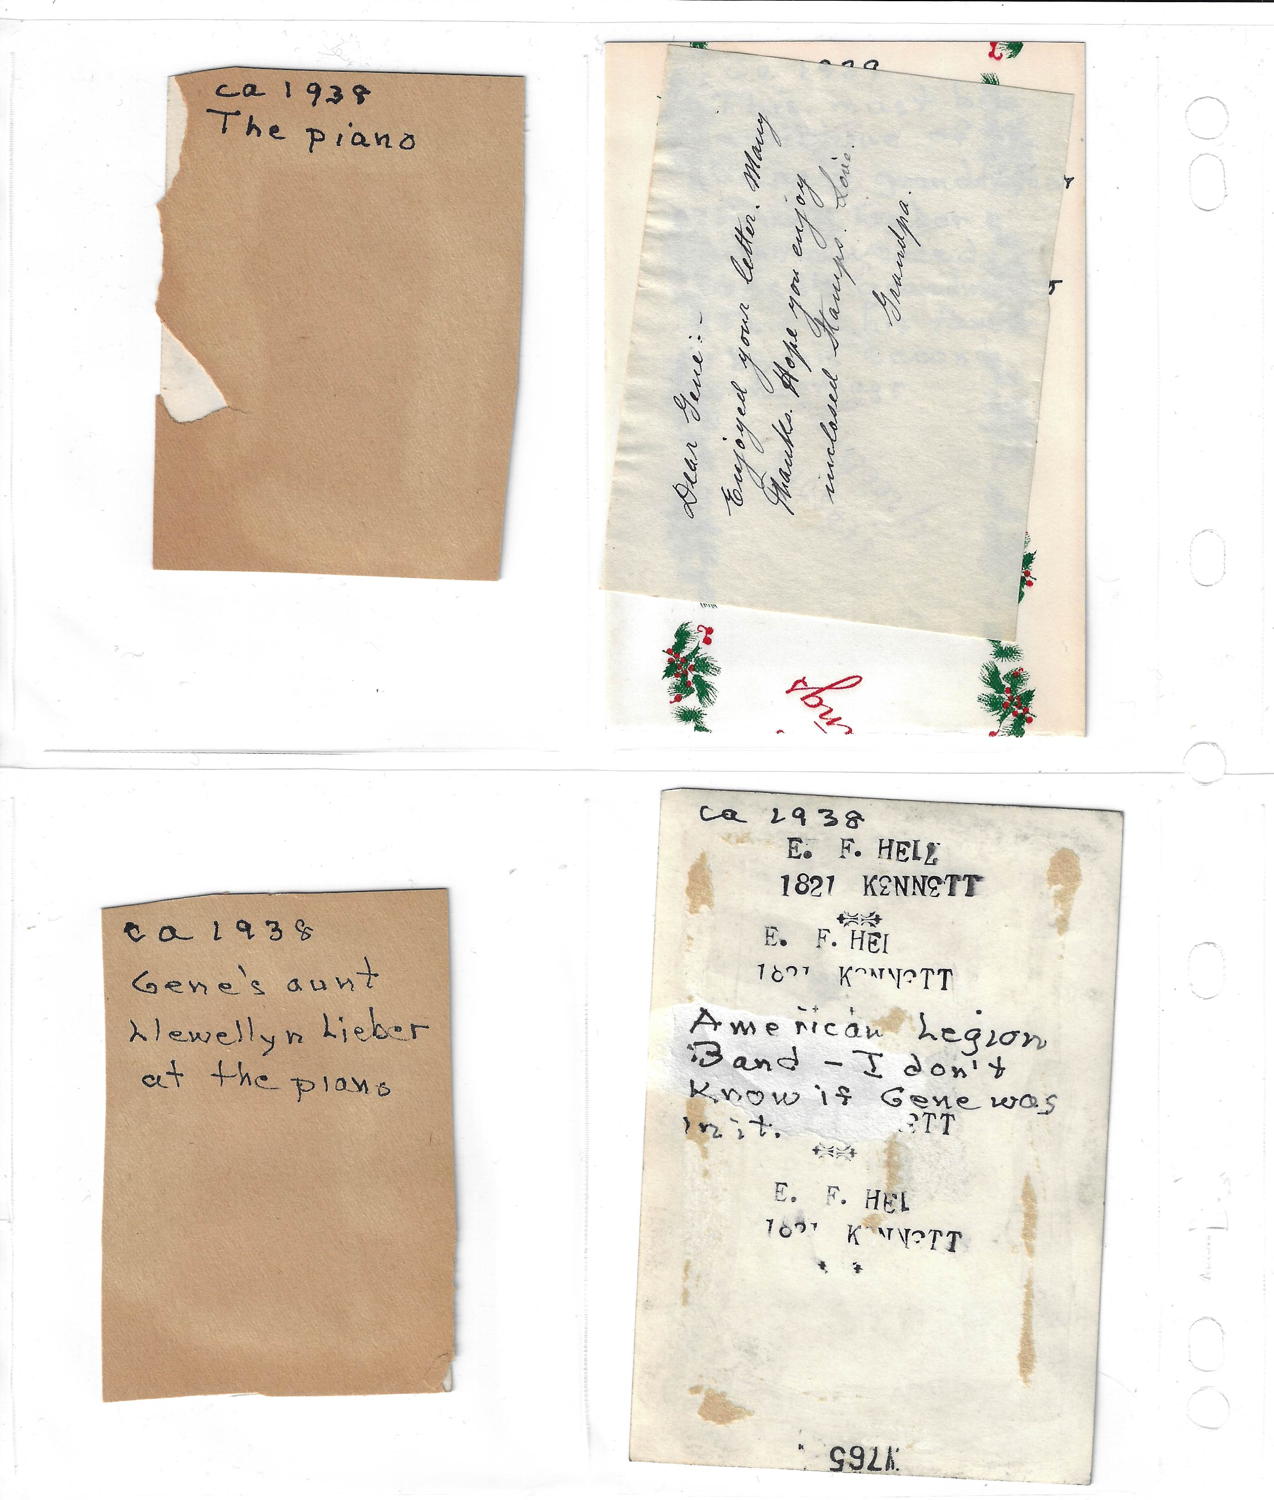 ca 1938
The piano
Dear Gene:-
Enjoyed your letter. Many
Thanks. Hope you enjoy
inclosed Stamps. Love.
Grandpa.
ca 1938
Gene's aunt
Llewellyn Lieber
at the piano
ca 1938
E. F. HELL
1821 KENNETT
E. F. HEI
1821 KENNETT
American Legion
Band - I don't
Know if Gene was
in it.
ETT
E. F. HEL
1821 KENNETT